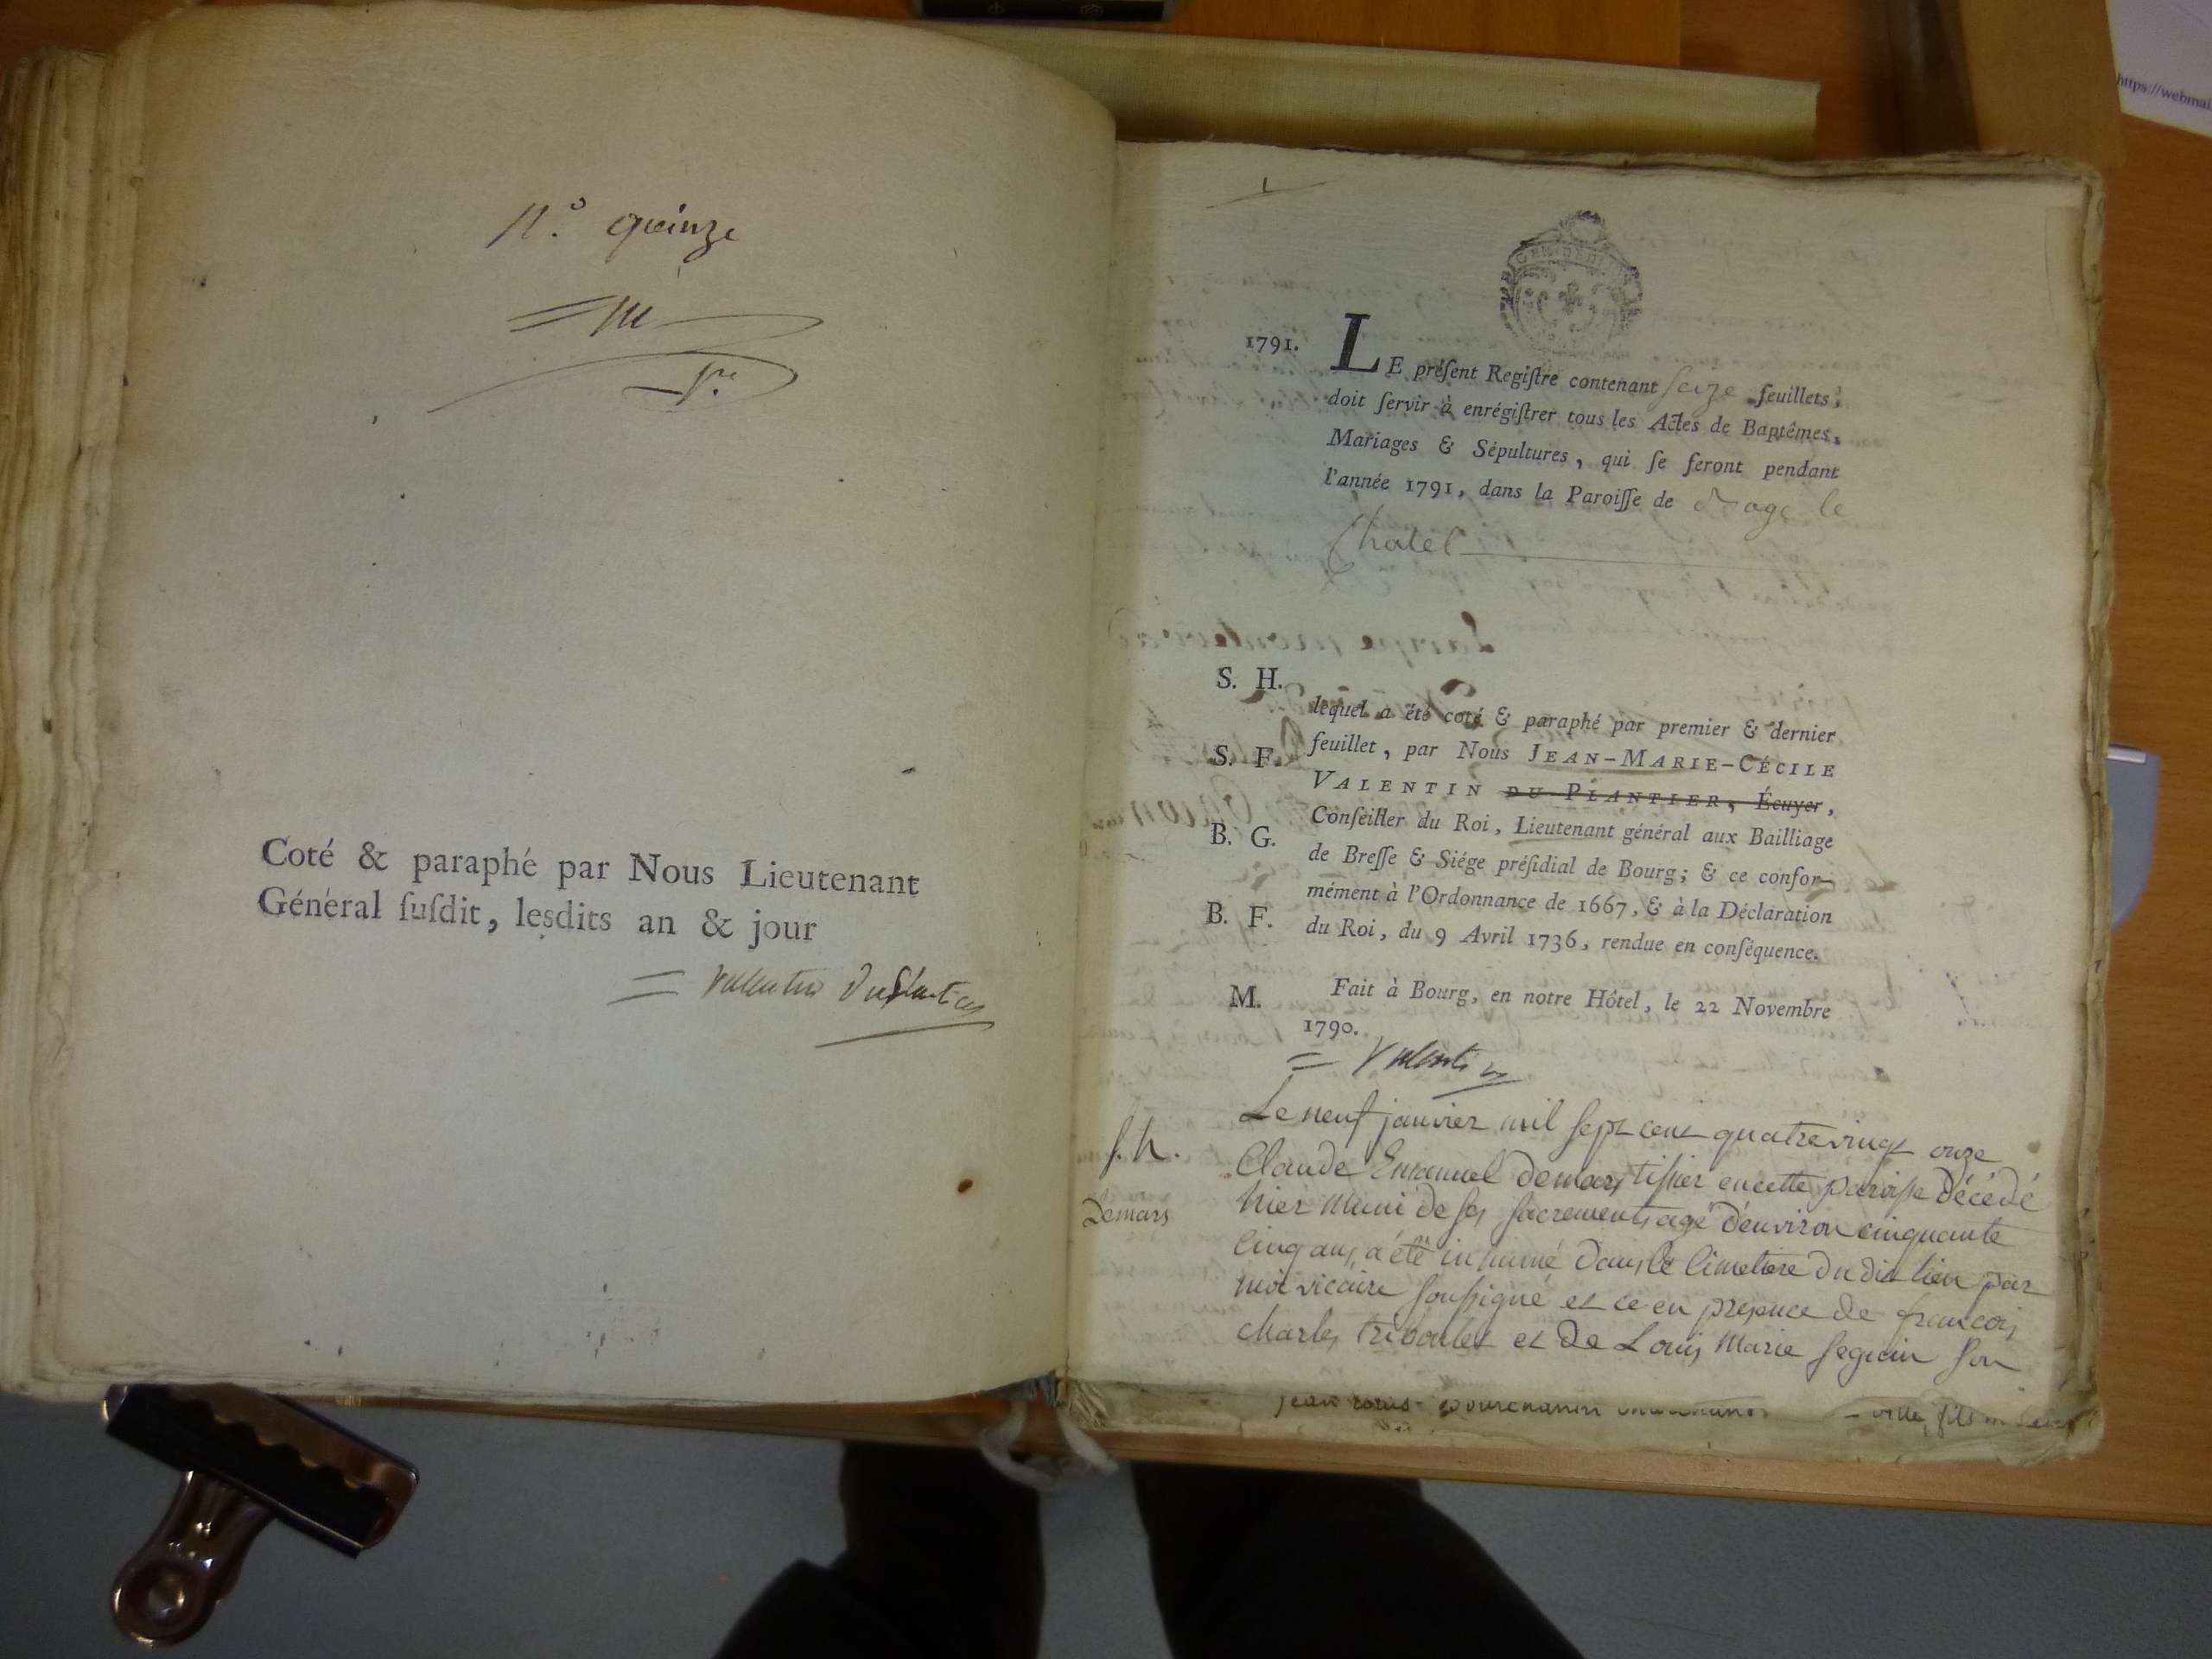 N.o quinze
Coté & paraphé par Nous Lieutenant
Général ſuſdit, lesdits an & jour
= Valentin Duplantier
1
1791. LE préſent Regiſtre contenant seize feuillets,
doit ſervir à enrégiſtrer tous les Actes de Baptêmes,
Mariages & Sépultures, qui ſe feront pendant
l'année 1791, dans la Paroiſſe de Bagé le
Chatel
S. H.
lequel a été coté & paraphé par premier & dernier
S. F. feuillet, par Nous JEAN-MARIE-CÉCILE
VALENTIN DU PLANTIER, Écuyer,
B. G. Conſeiller du Roi, Lieutenant général aux Bailliage
de Breſſe & Siége préſidial de Bourg; & ce confor-
mément à l'Ordonnance de 1667, & à la Déclaration
B. F. du Roi, du 9 Avril 1736, rendue en conſéquence.
M. Fait à Bourg, en notre Hôtel, le 22 Novembre
1790.
= Valentin
Le neuf janvier mil sept cent quatre vingt onze
s. h. Claude Emanuel demars tissier en cette paroisse décédé
Demars hier muni de ses sacrements agé d'environ cinquante
cinq ans, a été inhumé dans le cimetiere du dit lieu par
moi vicaire soussigné et ce en presence de francois
charles triboulet et de Louis Marie seguin son
https://webmai